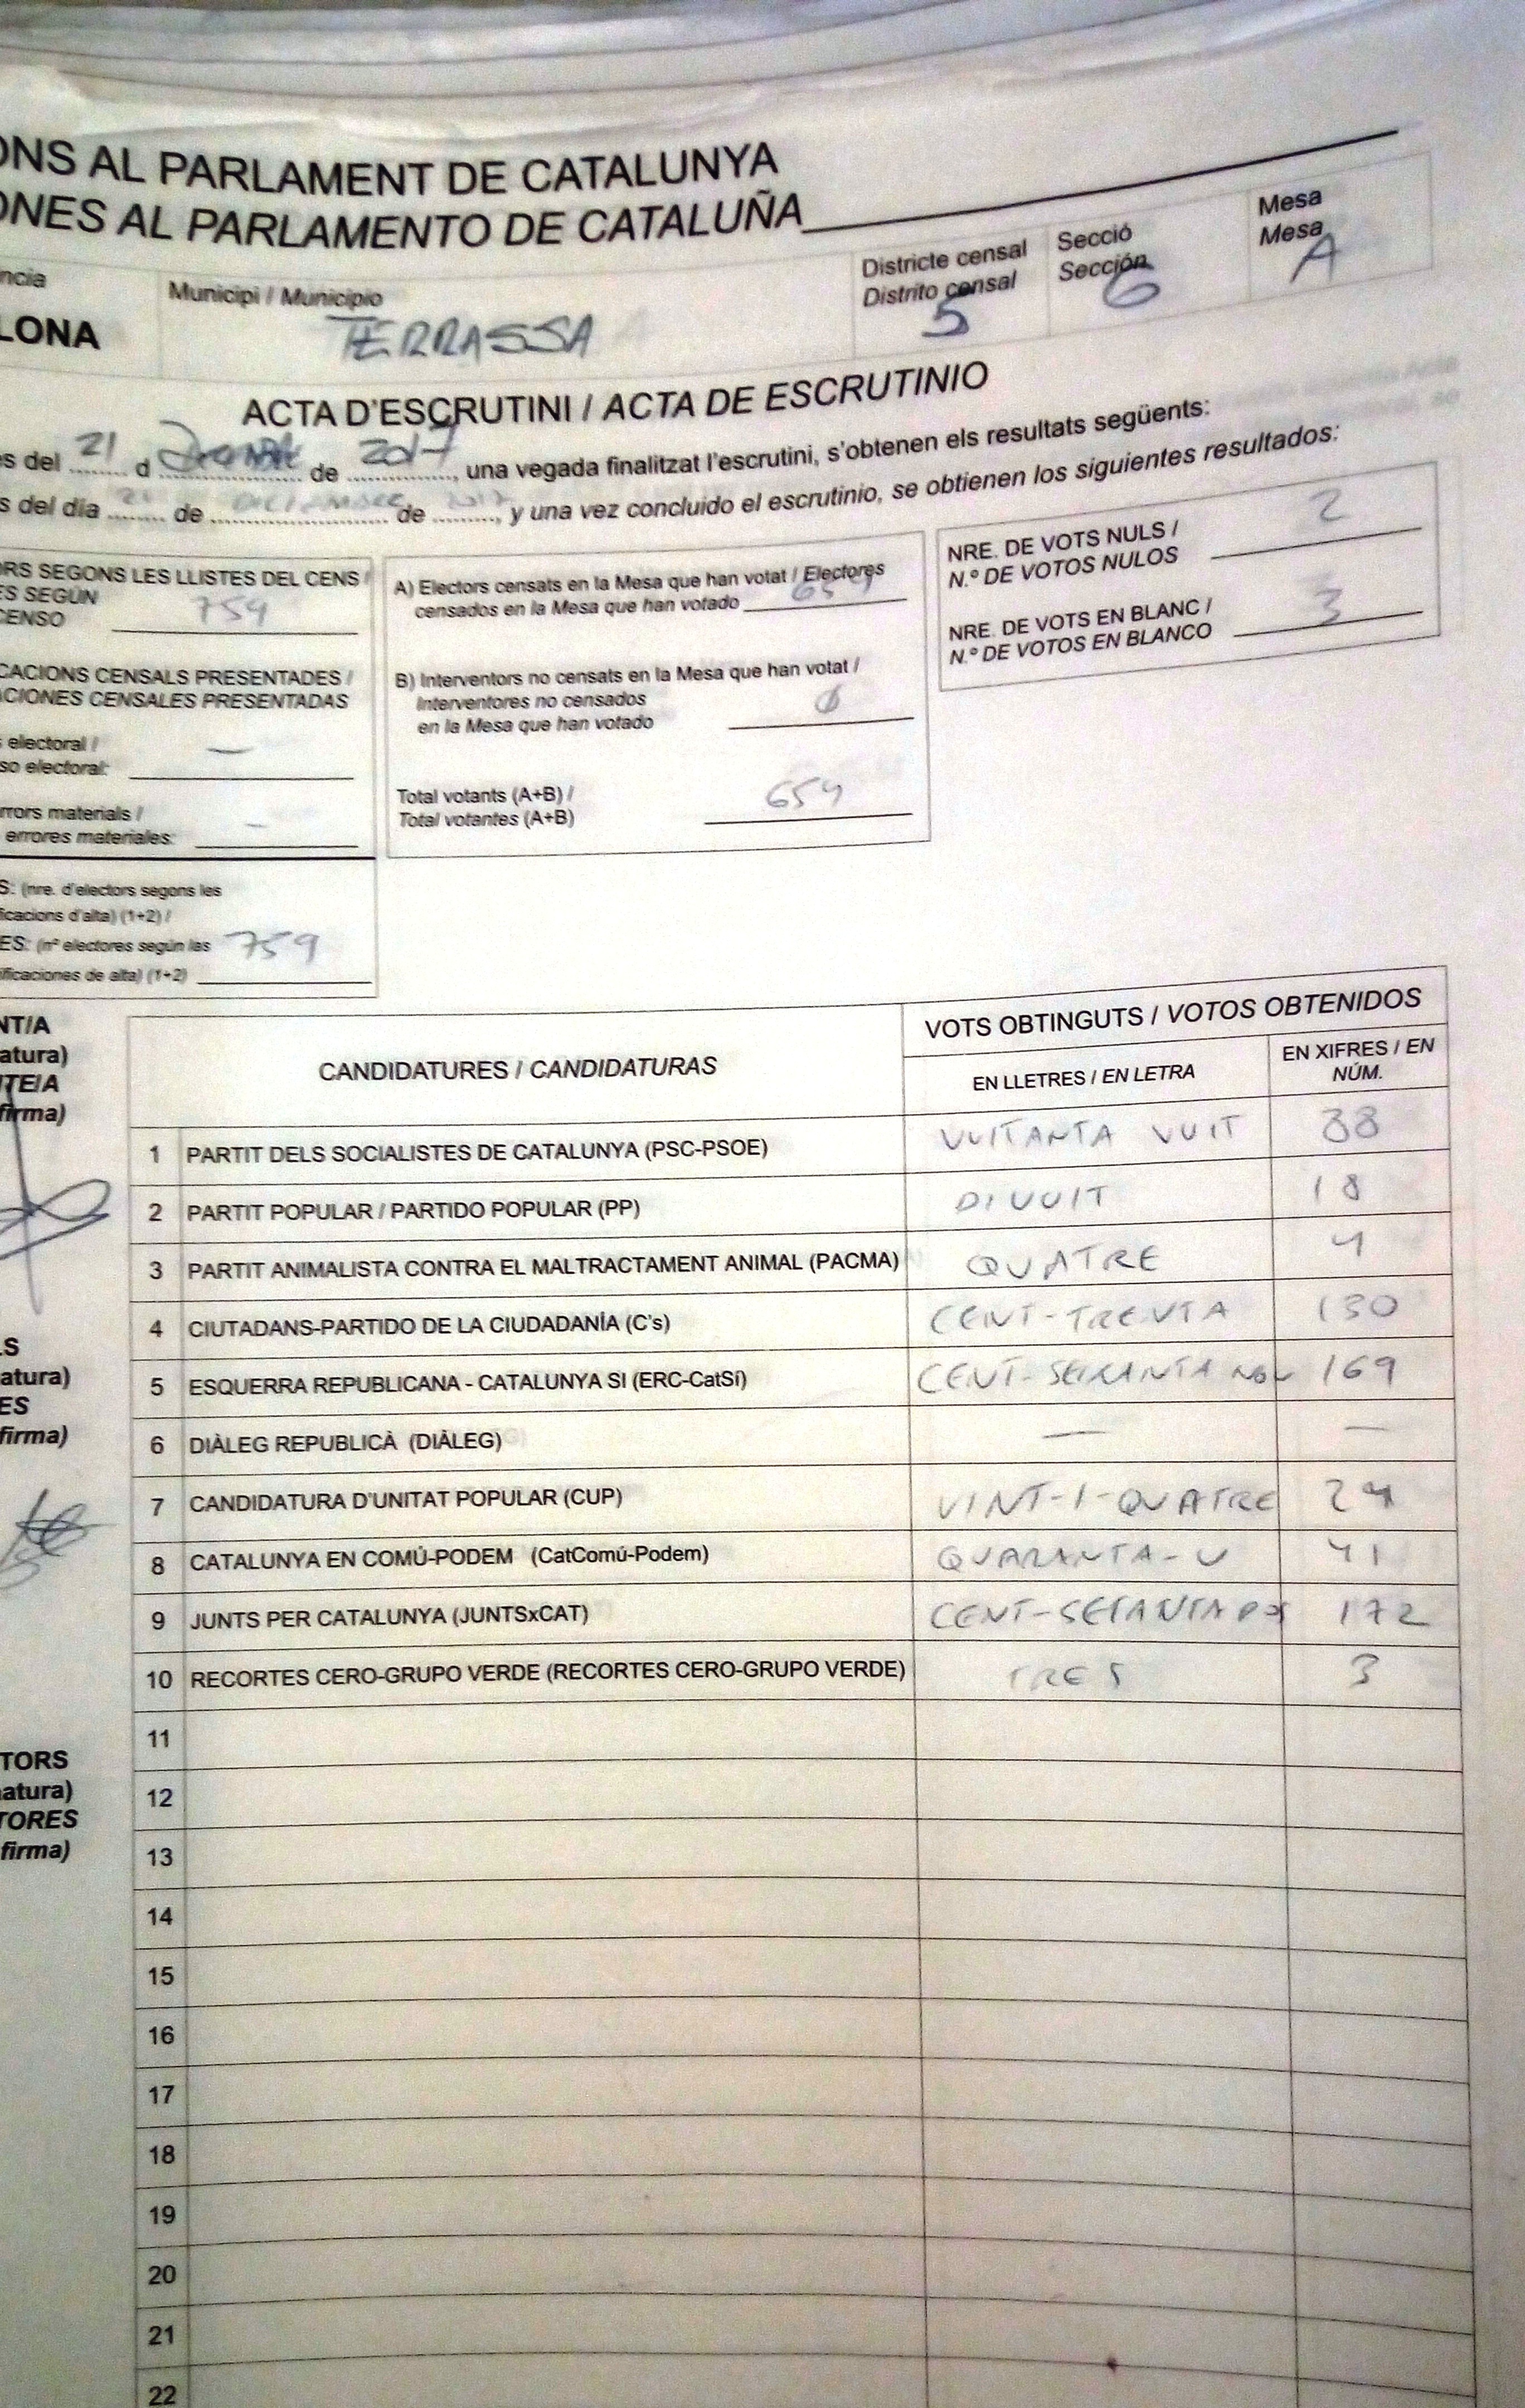 ONS AL PARLAMENT DE CATALUNYA
ONES AL PARLAMENTO DE CATALUÑA
ncia
LONA
Municipi / Municipio
TERRASSA
Districte censal
Distrito censal
5
Secció
Sección
6
Mesa
Mesa
A
ACTA D'ESCRUTINI / ACTA DE ESCRUTINIO
s del 21 d de 2017, una vegada finalitzat l'escrutini, s'obtenen els resultats següents:
s del día 21 de DICIEMBRE de 2017, y una vez concluido el escrutinio, se obtienen los siguientes resultados:
ORS SEGONS LES LLISTES DEL CENS /
ES SEGÚN
CENSO 759
CACIONS CENSALS PRESENTADES /
ACIONES CENSALES PRESENTADAS
s electoral /
so electoral: —
rrors materials /
errores materiales: —
S: (nre. d'electors segons les
ficacions d'alta) (1+2) /
ES: (nº electores según las 759
ificaciones de alta) (1+2)
A) Electors censats en la Mesa que han votat / Electores
censados en la Mesa que han votado 654
B) Interventors no censats en la Mesa que han votat /
Interventores no censados
en la Mesa que han votado 0
Total votants (A+B) /
Total votantes (A+B) 654
NRE. DE VOTS NULS /
N.º DE VOTOS NULOS 2
NRE. DE VOTS EN BLANC /
N.º DE VOTOS EN BLANCO 3
NT/A
atura)
TE/A
firma)
LS
atura)
ES
firma)
TORS
natura)
TORES
firma)
CANDIDATURES / CANDIDATURAS
VOTS OBTINGUTS / VOTOS OBTENIDOS
EN LLETRES / EN LETRA
EN XIFRES / EN
NÚM.
1 PARTIT DELS SOCIALISTES DE CATALUNYA (PSC-PSOE) VUITANTA VUIT 88
2 PARTIT POPULAR / PARTIDO POPULAR (PP) DIVUIT 18
3 PARTIT ANIMALISTA CONTRA EL MALTRACTAMENT ANIMAL (PACMA) QUATRE 4
4 CIUTADANS-PARTIDO DE LA CIUDADANÍA (C's) CENT-TRENTA 130
5 ESQUERRA REPUBLICANA - CATALUNYA SI (ERC-CatSí) CENT-SEIXANTA NOU 169
6 DIÀLEG REPUBLICÀ (DIÀLEG) — —
7 CANDIDATURA D'UNITAT POPULAR (CUP) VINT-I-QUATRE 24
8 CATALUNYA EN COMÚ-PODEM (CatComú-Podem) QUARANTA-U 41
9 JUNTS PER CATALUNYA (JUNTSxCAT) CENT-SETANTA DOS 172
10 RECORTES CERO-GRUPO VERDE (RECORTES CERO-GRUPO VERDE) TRES 3
11
12
13
14
15
16
17
18
19
20
21
22